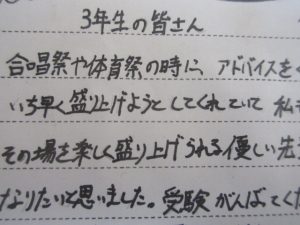 3年生の皆さん
合唱祭や体育祭の時に、アドバイスを
いち早く盛り上げようとしてくれていて 私
その場を楽しく盛り上げられる優しい先
なりたいと思いました。受験がんばってくだ